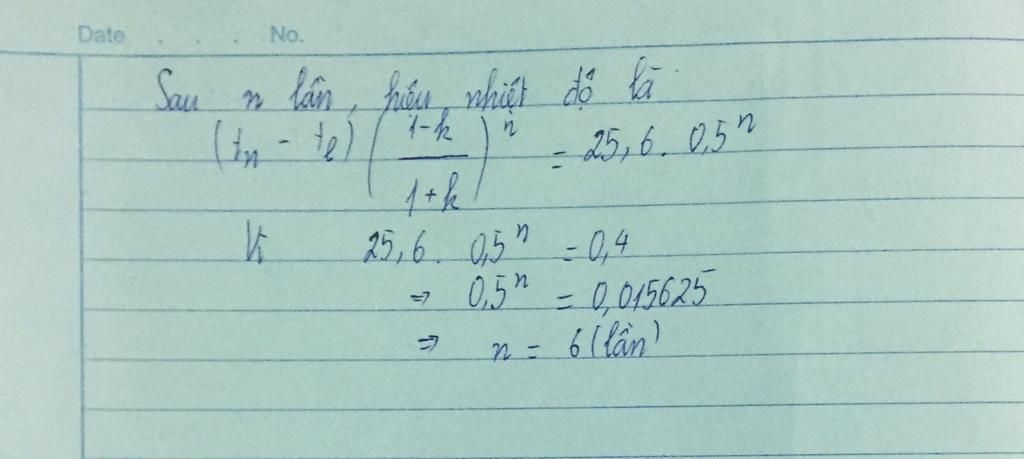 Date . . . . No.
Sau n lần, hiệu nhiệt độ là
(t_n - t_l) ((1-k)/(1+k))^n = 25,6. 0,5^n
Vì 25,6. 0,5^n = 0,4
⇒ 0,5^n = 0,015625
⇒ n = 6 (lần)